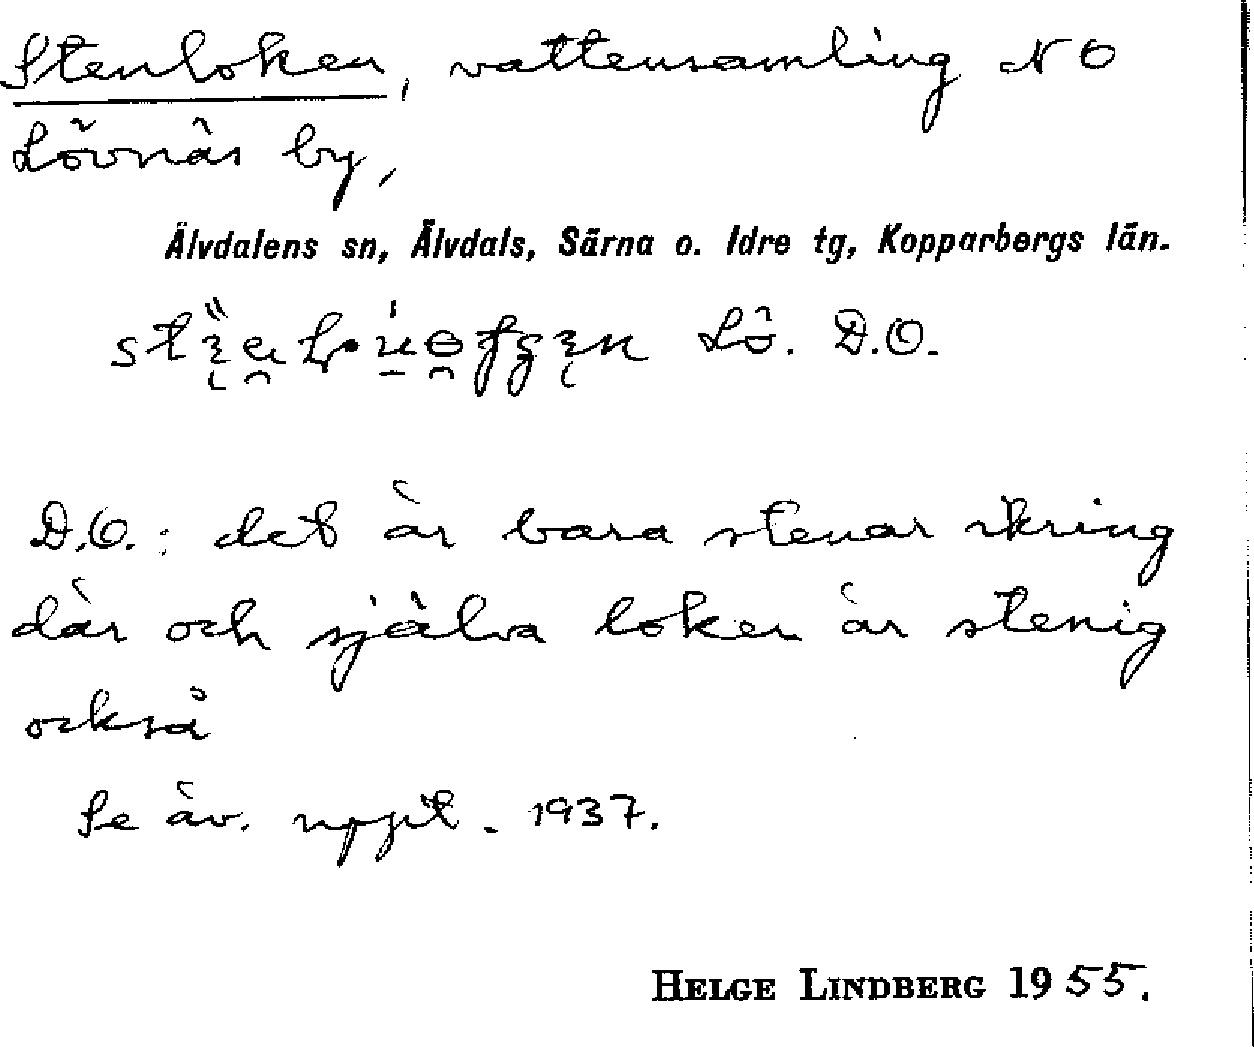 Stenloken, vattensamling NO
Lövnäs by,
Älvdalens sn, Älvdals, Särna o. Idre tg, Kopparbergs län.
Lö. D.O.
D.O.: det är bara stenar ikring
där och själva loken är stenig
också
Se äv. uppt. 1937.
HELGE LINDBERG 1955.